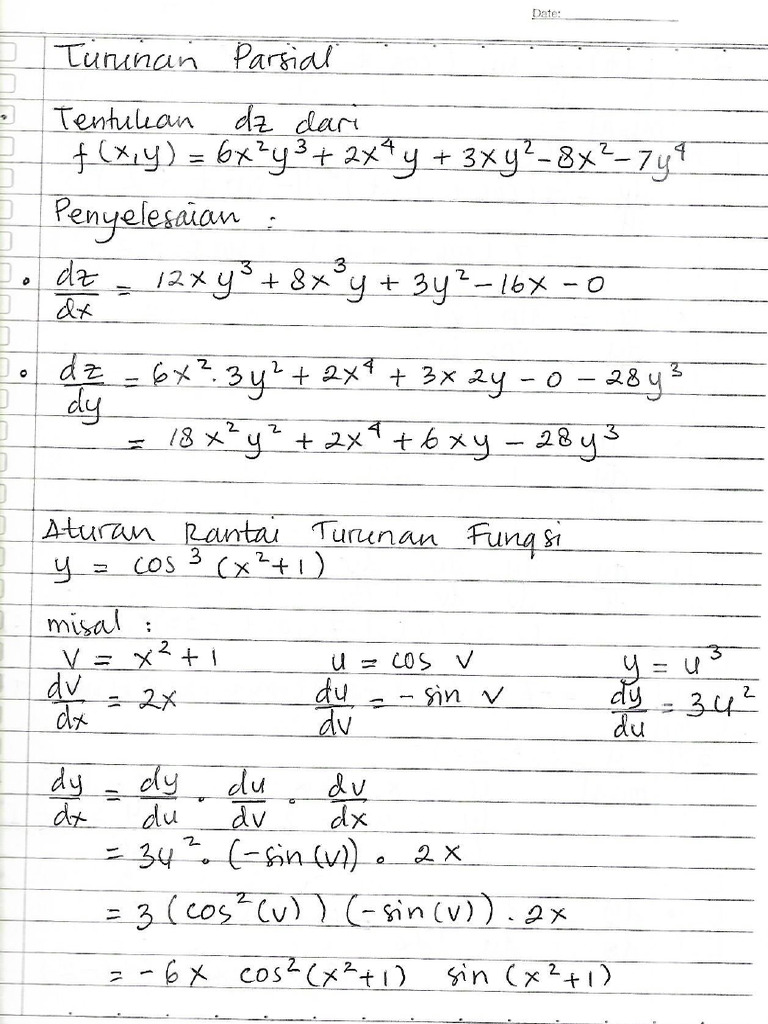 Date:
Turunan Parsial
Tentukan dz dari
f(x,y) = 6x²y³ + 2x⁴y + 3xy² - 8x² - 7y⁴
Penyelesaian :
• dz/dx = 12xy³ + 8x³y + 3y² - 16x - 0
• dz/dy = 6x². 3y² + 2x⁴ + 3x 2y - 0 - 28y³
= 18x²y² + 2x⁴ + 6xy - 28y³
Aturan Rantai Turunan Fungsi
y = cos³ (x²+1)
misal :
v = x² + 1 u = cos v y = u³
dv/dx = 2x du/dv = - sin v dy/du = 3u²
dy/dx = dy/du . du/dv . dv/dx
= 3u² . (-sin(v)) . 2x
= 3 (cos²(v)) (-sin(v)) . 2x
= -6x cos²(x²+1) sin (x²+1)